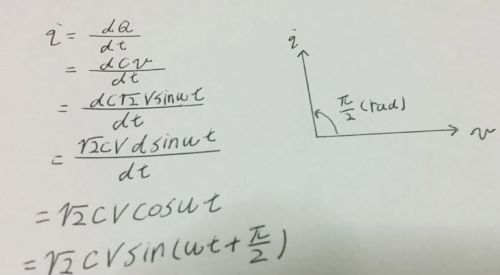 i = dQ/dt
= dCv/dt
= dC√2Vsinωt/dt
= √2CVdsinωt/dt
= √2CVcosωt
= √2CVsin(ωt + π/2)
i
π/2 (rad)
v